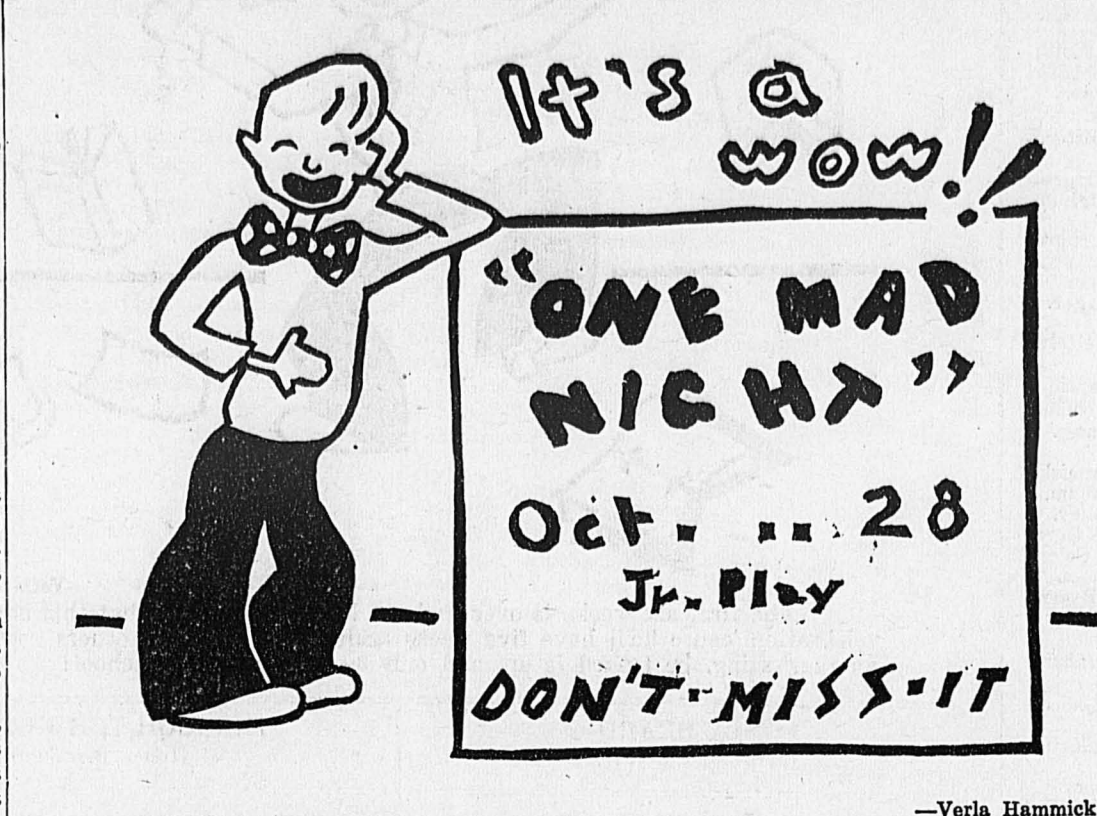 It's a
wow!!
"ONE MAD
NIGHT"
Oct. .. 28
Jr. Play
DON'T-MISS-IT
—Verla Hammick